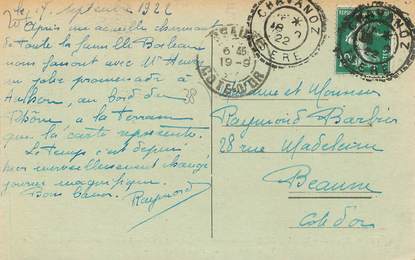 17 Septembre 1922
Après un accueil charmant
de toute la famille
nous
jolie promenade à
au bord du
Rhône à la terrasse
que la carte représente.
Le temps s'est depuis
hier merveilleusement changé
journée magnifique.
Bons baisers. Raymond
CHAVANOZ
22
ISERE
BEAUNE
6*45
19-9
COTE-D'OR
CHAVANOZ
Madame et Monsieur
Raymond Barbier
28 rue Madeleine
Beaune
Côte d'or